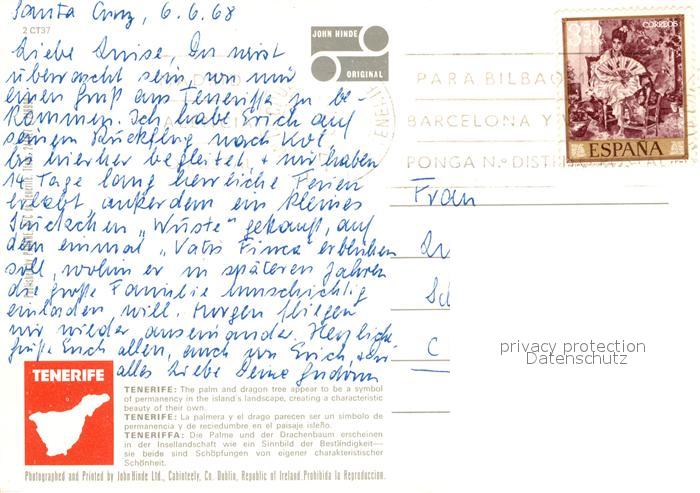 Santa Cruz, 6.6.68
2 CT37
Liebe Luise, Du wirst
überrascht sein von mir
einen Gruß aus Teneriffa zu be-
kommen. Ich habe Erich auf
seinem Rückflug nach
bis hierher begleitet + wir haben
14 Tage lang herrliche Ferien
erlebt außerdem ein kleines
Stückchen "Wüste" gekauft, auf
dem einmal "Vatis Finca" erblühen
soll, wohin er in späteren Jahren
die große Familie umschichtig
einladen will. Morgen fliegen
wir wieder auseinander. Herzliche
Grüße Euch allen, auch von Erich,
alles Liebe Deine
JOHN HINDE
ORIGINAL
PARA BILBAO
BARCELONA Y
PONGA N.º DISTRITO
3,50 PTS
CORREOS
ESPAÑA
Frau
privacy protection
Datenschutz
TENERIFE
TENERIFE: The palm and dragon tree appear to be a symbol
of permanency in the island's landscape, creating a characteristic
beauty of their own.
TENERIFE: La palmera y el drago parecen ser un símbolo de
permanencia y de reciedumbre en el paisaje isleño.
TENERIFFA: Die Palme und der Drachenbaum erscheinen
in der Insellandschaft wie ein Sinnbild der Beständigkeit—
sie beide sind Schöpfungen von eigener charakteristischer
Schönheit.
Photographed and Printed by John Hinde Ltd., Cabinteely, Co. Dublin, Republic of Ireland. Prohibida la Reproduccion.